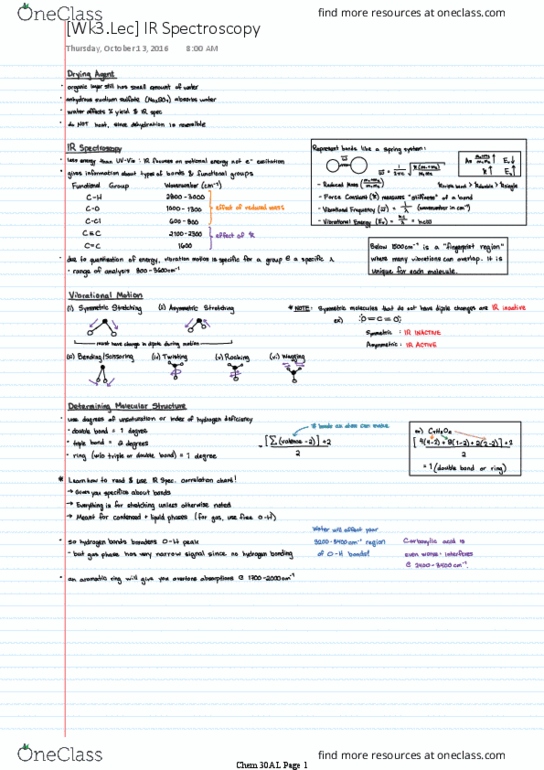 OneClass
find more resources at oneclass.com
[Wk3.Lec] IR Spectroscopy
Thursday, October 13, 2016 8:00 AM
Drying Agent
· organic layer still has small amount of water
· anhydrous sodium sulfate (Na₂SO₄) absorbs water
· water affects % yield & IR spec
· do NOT heat, since dehydration is reversible
IR Spectroscopy
· less energy than UV-Vis : IR focuses on vibrational energy not e⁻ excitation
· gives information about types of bonds & functional groups
Functional Group Wavenumber (cm⁻¹)
C-H 2800-3000
C-O 1000-1300
C-Cl 600-800
effect of reduced mass
C≡C 2100-2300
C=C 1600
effect of k
· due to quantization of energy, vibration motion is specific for a group @ a specific λ
· range of analysis
Represent bonds like a spring system:
- Reduced Mass
- Force Constant (k) measures "stiffness" of a bond
- Vibrational Frequency (wavenumber in cm⁻¹)
- Vibrational Energy
Below 1500cm⁻¹ is a "fingerprint region"
where many vibrations can overlap. It is
unique for each molecule.
Vibrational Motion
(i) Symmetric Stretching (ii) Asymmetric Stretching
must have change in dipole during motion
(iii) Bending/Scissoring (iv) Twisting (v) Rocking (vi) Wagging
* NOTE: Symmetric molecules that do not have dipole changes are IR inactive
ex) :O=C=O:
Symmetric : IR INACTIVE
Asymmetric : IR ACTIVE
Determining Molecular Structure
· use degrees of unsaturation or index of hydrogen deficiency
· double bond = 1 degree
· triple bond = 2 degrees
· ring (w/o triple or double bond) = 1 degree
# bonds an atom can make
= [Σ(valence-2)]+2
2
= 1 (double bond or ring)
* Learn how to read & use IR Spec. correlation chart!
→ Gives you specifics about bonds
→ Everything is for stretching unless otherwise noted
→ Meant for condensed + liquid phases (for gas, use free O-H)
· so hydrogen bonds broadens O-H peak
- but gas phase has very narrow signal since no hydrogen bonding
Water will affect your
3200-3400cm⁻¹ region
of O-H bonds!
Carboxylic acid is
even worse - interferes
@ 2400-3400 cm⁻¹.
· an aromatic ring will give you overtone absorptions @ 1700-2000cm⁻¹
OneClass
Chem 30AL Page 1
find more resources at oneclass.com